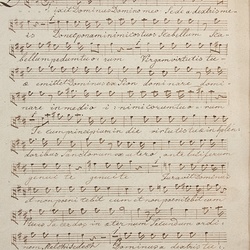 Dixit Dominus Domino meo Sede a dextris me
is Donec ponam inimicos tuos Scabellum Sca
bellum pedum tuo rum Virgam virtutis tu
a emittet Dominus ex Sion Dominare domi
nare in medio inimicorum tuo rum
Te cum principium in die virtutis tua in splen
doribus Sanctorum ex utero, ante luciferum
genui te genui te Juravit Domin
et non poeni tebit eum et non poeni tebit eum
tu es Sacerdos in ater num Secundum ordi
nem Melchisedech Dominus a dextris tu